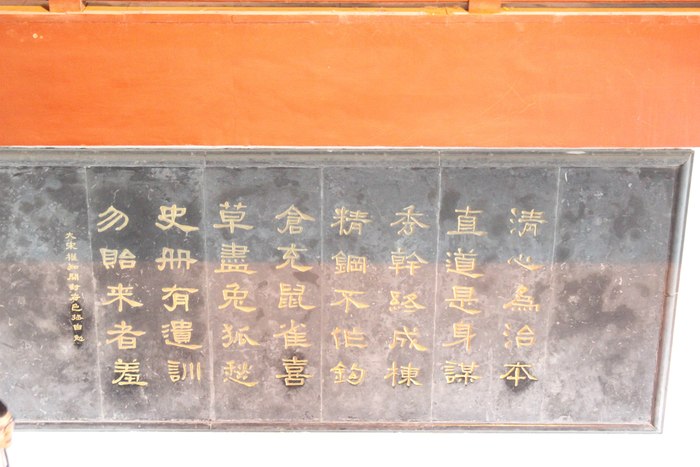 清心為治本
直道是身謀
秀幹終成棟
精鋼不作鉤
倉充鼠雀喜
草盡兔狐愁
史冊有遺訓
勿貽來者羞
大宋權知開封府包拯自勉